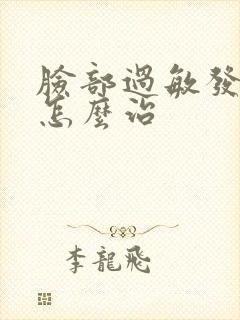 臉部過敏發
怎麼治
李龍飛